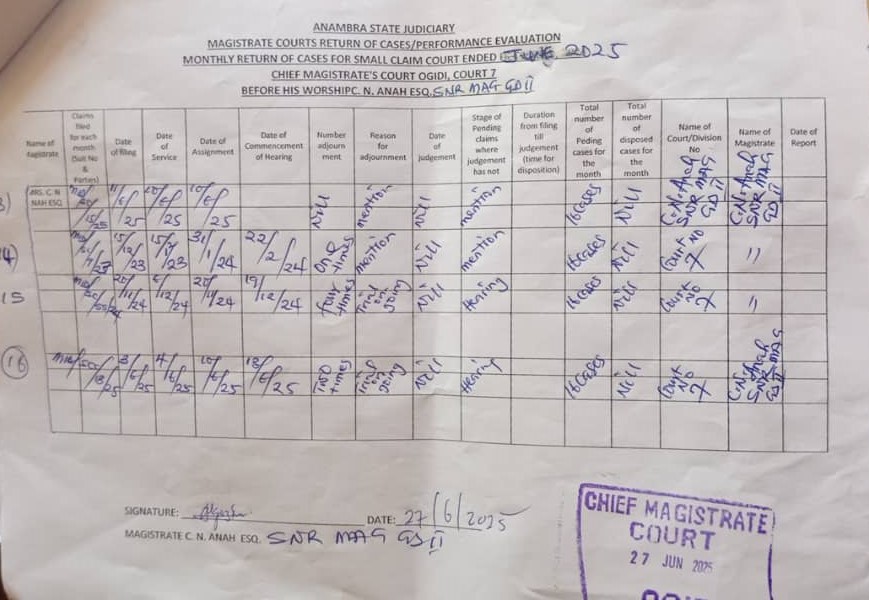 ANAMBRA STATE JUDICIARY
MAGISTRATE COURTS RETURN OF CASES/PERFORMANCE EVALUATION
MONTHLY RETURN OF CASES FOR SMALL CLAIM COURT ENDED JUNE, 2025
CHIEF MAGISTRATE'S COURT OGIDI, COURT 7
BEFORE HIS WORSHIPC. N. ANAH ESQ. SNR MAG GD II
Name of Magistrate
Claims filed for each month (Suit No & Parties)
Date of filing
Date of Service
Date of Assignment
Date of Commencement of Hearing
Number adjourn ment
Reason for adjournment
Date of judgement
Stage of Pending claims where judgement has not
Duration from filing till judgement (time for disposition)
Total number of Peding cases for the month
Total number of disposed cases for the month
Name of Court/Division No
Name of Magistrate
Date of Report
MRS. C. N NAH ESQ. /6/25 /6/25 /6/25 Nill mention Nill mention 16 cases Nill C.N. Anah SNR MAG GD II C.N. Anah SNR MAG GD II
4) 15/12/23 15/ /23 31/1/24 22/2/24 one times mention Nill mention 16 cases Nill Court NO 7 "
15 /11/24 /12/24 /24 19/12/24 four times Trial on going Nill Hearing 16 cases Nill Court NO 7 "
16 3/6/25 4/6/25 10/6/25 18/6/25 Two times Trial on going Nill Hearing 16 cases Nill Court NO 7 C.N. Anah SNR MAG GD II
SIGNATURE:
DATE: 27/6/2025
MAGISTRATE C. N. ANAH ESQ. SNR MAG GD II
CHIEF MAGISTRATE
COURT
27 JUN 2025